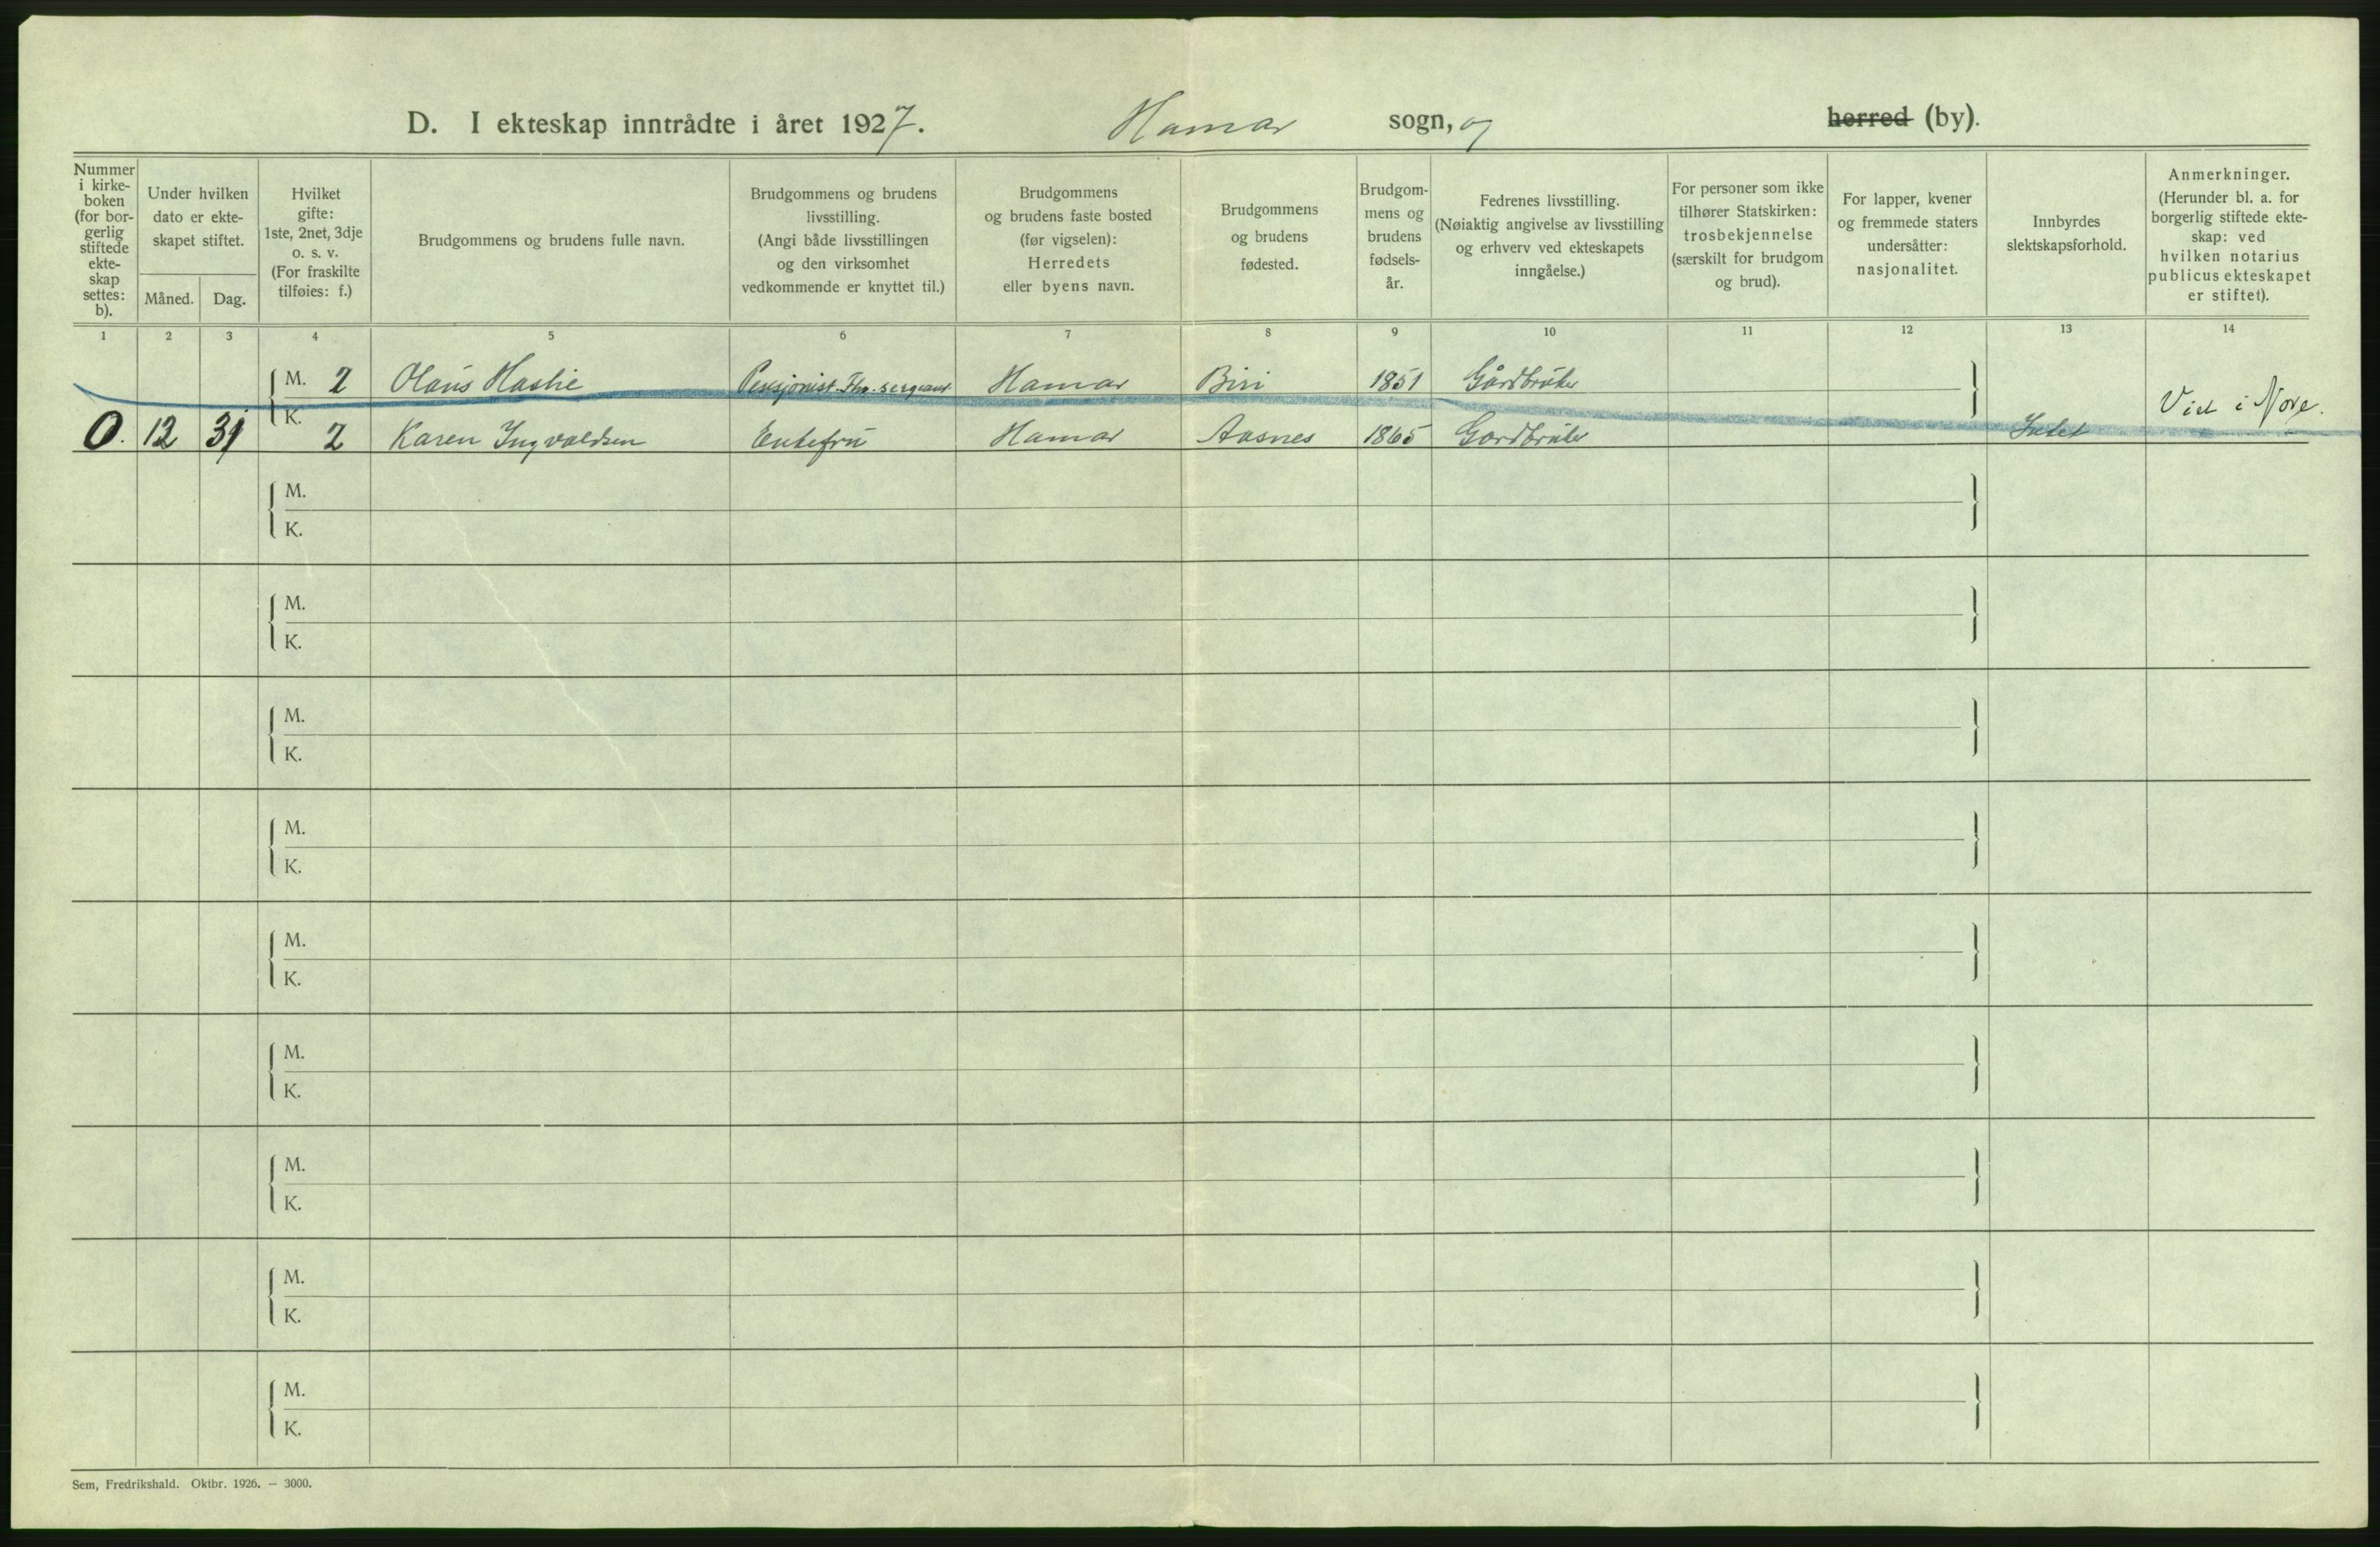 D. I ekteskap inntrådte i året 1927. Hamar sogn, og herred (by).
Nummer i kirke-boken (for bor-gerlig stiftede ekte-skap settes: b).
Under hvilken dato er ekte-skapet stiftet.
Måned. Dag.
Hvilket gifte: 1ste, 2net, 3dje o. s. v. (For fraskilte tilføies: f.)
Brudgommens og brudens fulle navn.
Brudgommens og brudens livsstilling. (Angi både livsstillingen og den virksomhet vedkommende er knyttet til.)
Brudgommens og brudens faste bosted (før vigselen): Herredets eller byens navn.
Brudgommens og brudens fødested.
Brudgom-mens og brudens fødsels-år.
Fedrenes livsstilling. (Nøiaktig angivelse av livsstilling og erhverv ved ekteskapets inngåelse.)
For personer som ikke tilhører Statskirken: trosbekjennelse (særskilt for brudgom og brud).
For lapper, kvener og fremmede staters undersåtter: nasjonalitet.
Innbyrdes slektskapsforhold.
Anmerkninger. (Herunder bl. a. for borgerlig stiftede ekte-skap: ved hvilken notarius publicus ekteskapet er stiftet).
1 2 3 4 5 6 7 8 9 10 11 12 13 14
M. 2 Olaus Haslie Pensjonist. sergeant Hamar Biri 1851 Gårdbruker
Viet i Nore.
0. 12 31 K. 2 Karen Ingvaldsen Enkefru Hamar Aasnes 1865 Gardbruker Intet
M.
K.
M.
K.
M.
K.
M.
K.
M.
K.
M.
K.
M.
K.
M.
K.
M.
K.
Sem, Fredrikshald. Oktbr. 1926. — 3000.